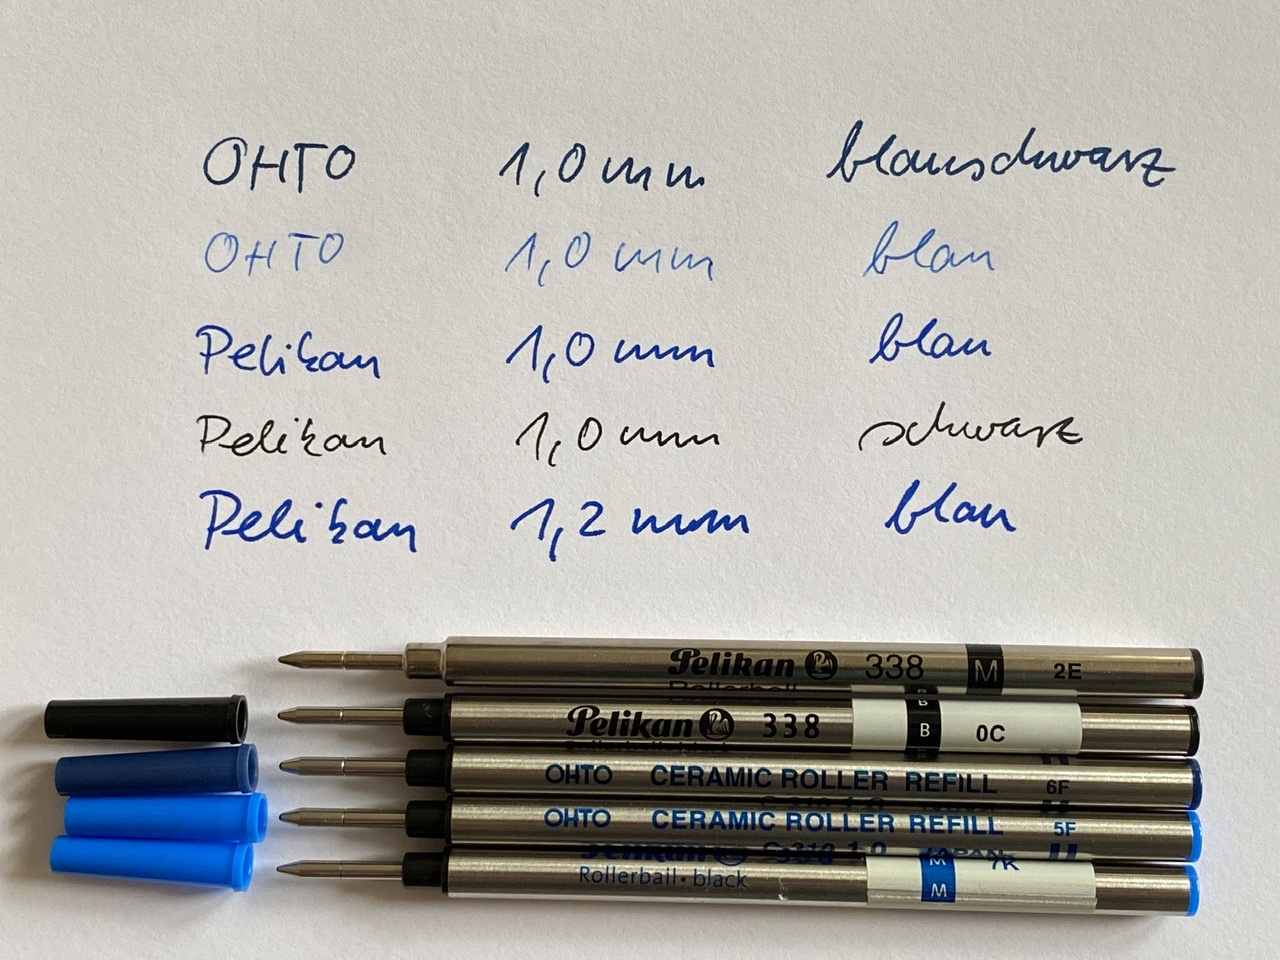 OHTO 1,0 mm blauschwarz
OHTO 1,0 mm blau
Pelikan 1,0 mm blau
Pelikan 1,0 mm schwarz
Pelikan 1,2 mm blau
Pelikan 338 M 2E
Rollerball
B
Pelikan 338 B 0C
OHTO CERAMIC ROLLER REFILL 6F
OHTO CERAMIC ROLLER REFILL 5F
Pelikan 338 M 7K
Rollerball · black M